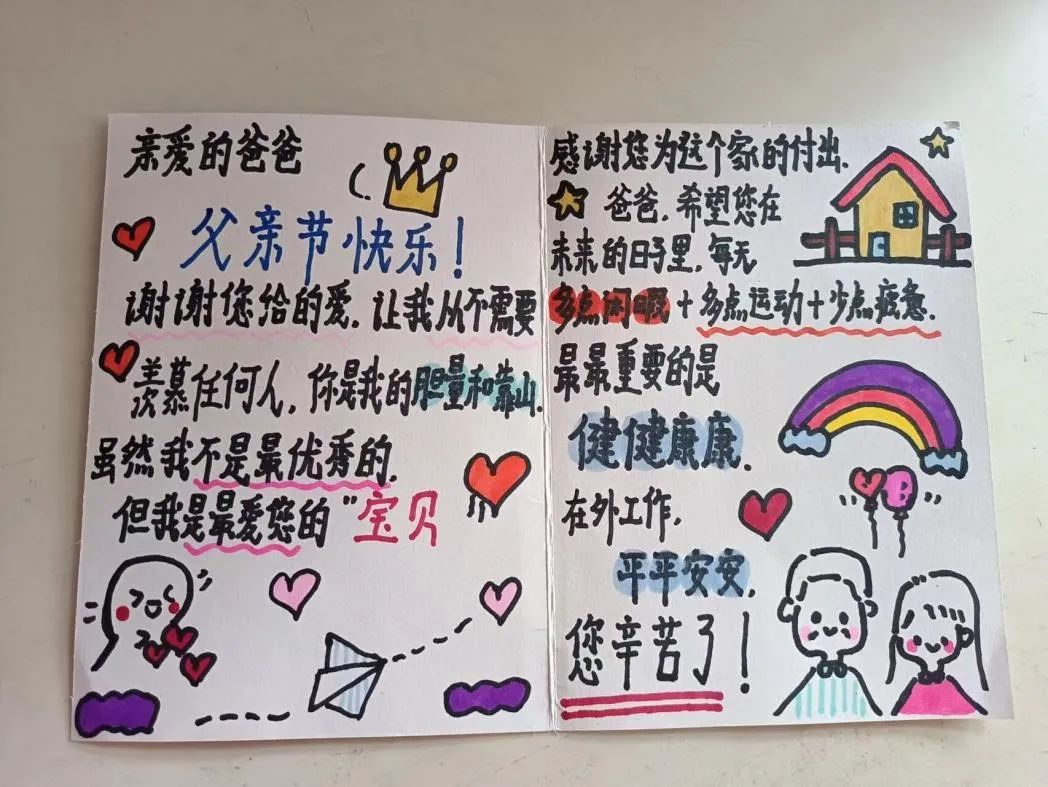 亲爱的爸爸
父亲节快乐!
谢谢您给的爱,让我从不需要
羡慕任何人,你是我的胆量和靠山.
虽然我不是最优秀的,
但我是最爱您的"宝贝
感谢您为这个家的付出.
爸爸,希望您在
未来的日子里,每天
多点闲暇+多点运动+少点疲惫.
最最重要的是
健健康康.
在外工作,
平平安安,
您辛苦了!